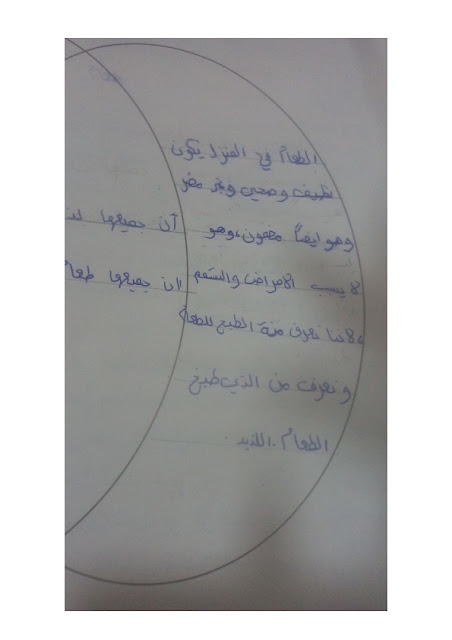 الطعام في المنزل يكون
نظيف وصحي وغير مضر
وهو ايضاً مضمون، وهو
لا يسبب الامراض والتسمم
لاننا نعرف مدة الطبخ للطعام
ونعرف من الذي طبخ
الطعام اللذيذ.
أن جميعها لذ
ان جميعها طعا